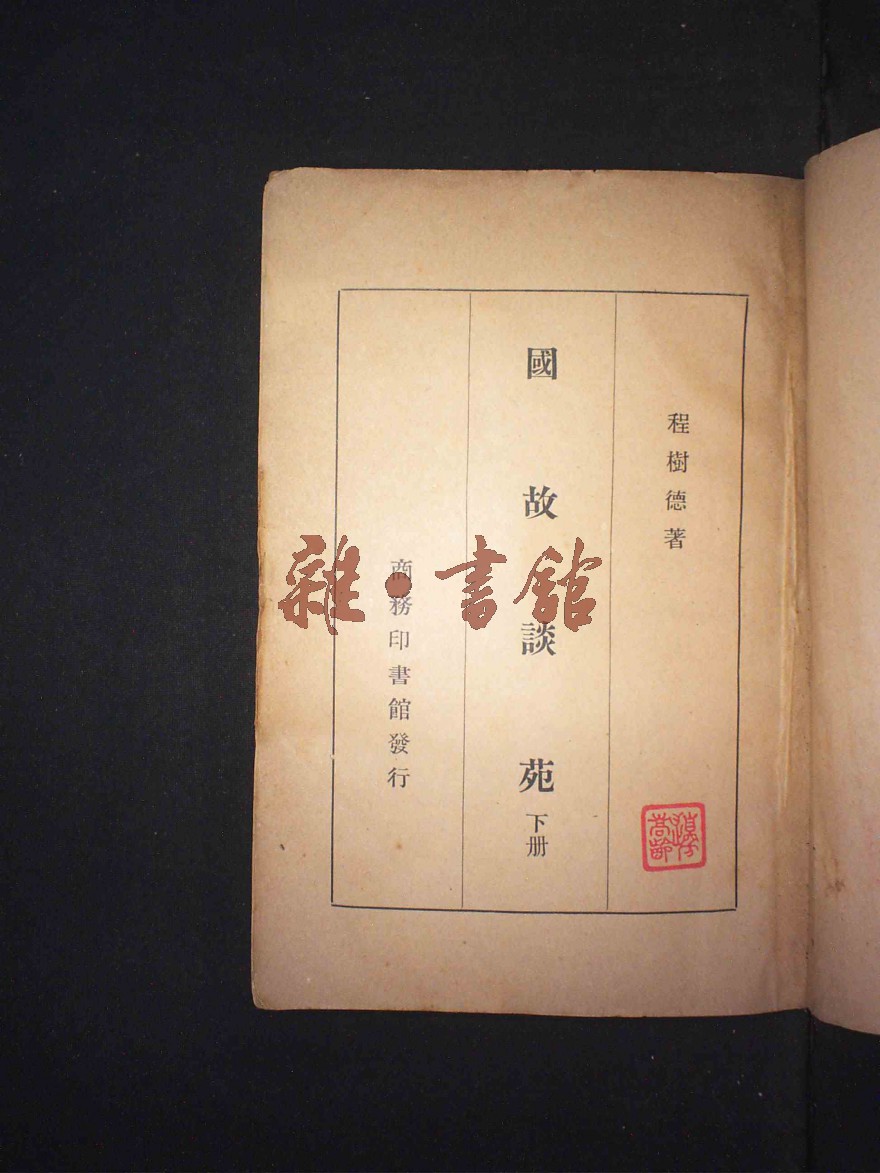 程樹德著
國故談苑 下册
商務印書館發行
雜·書館